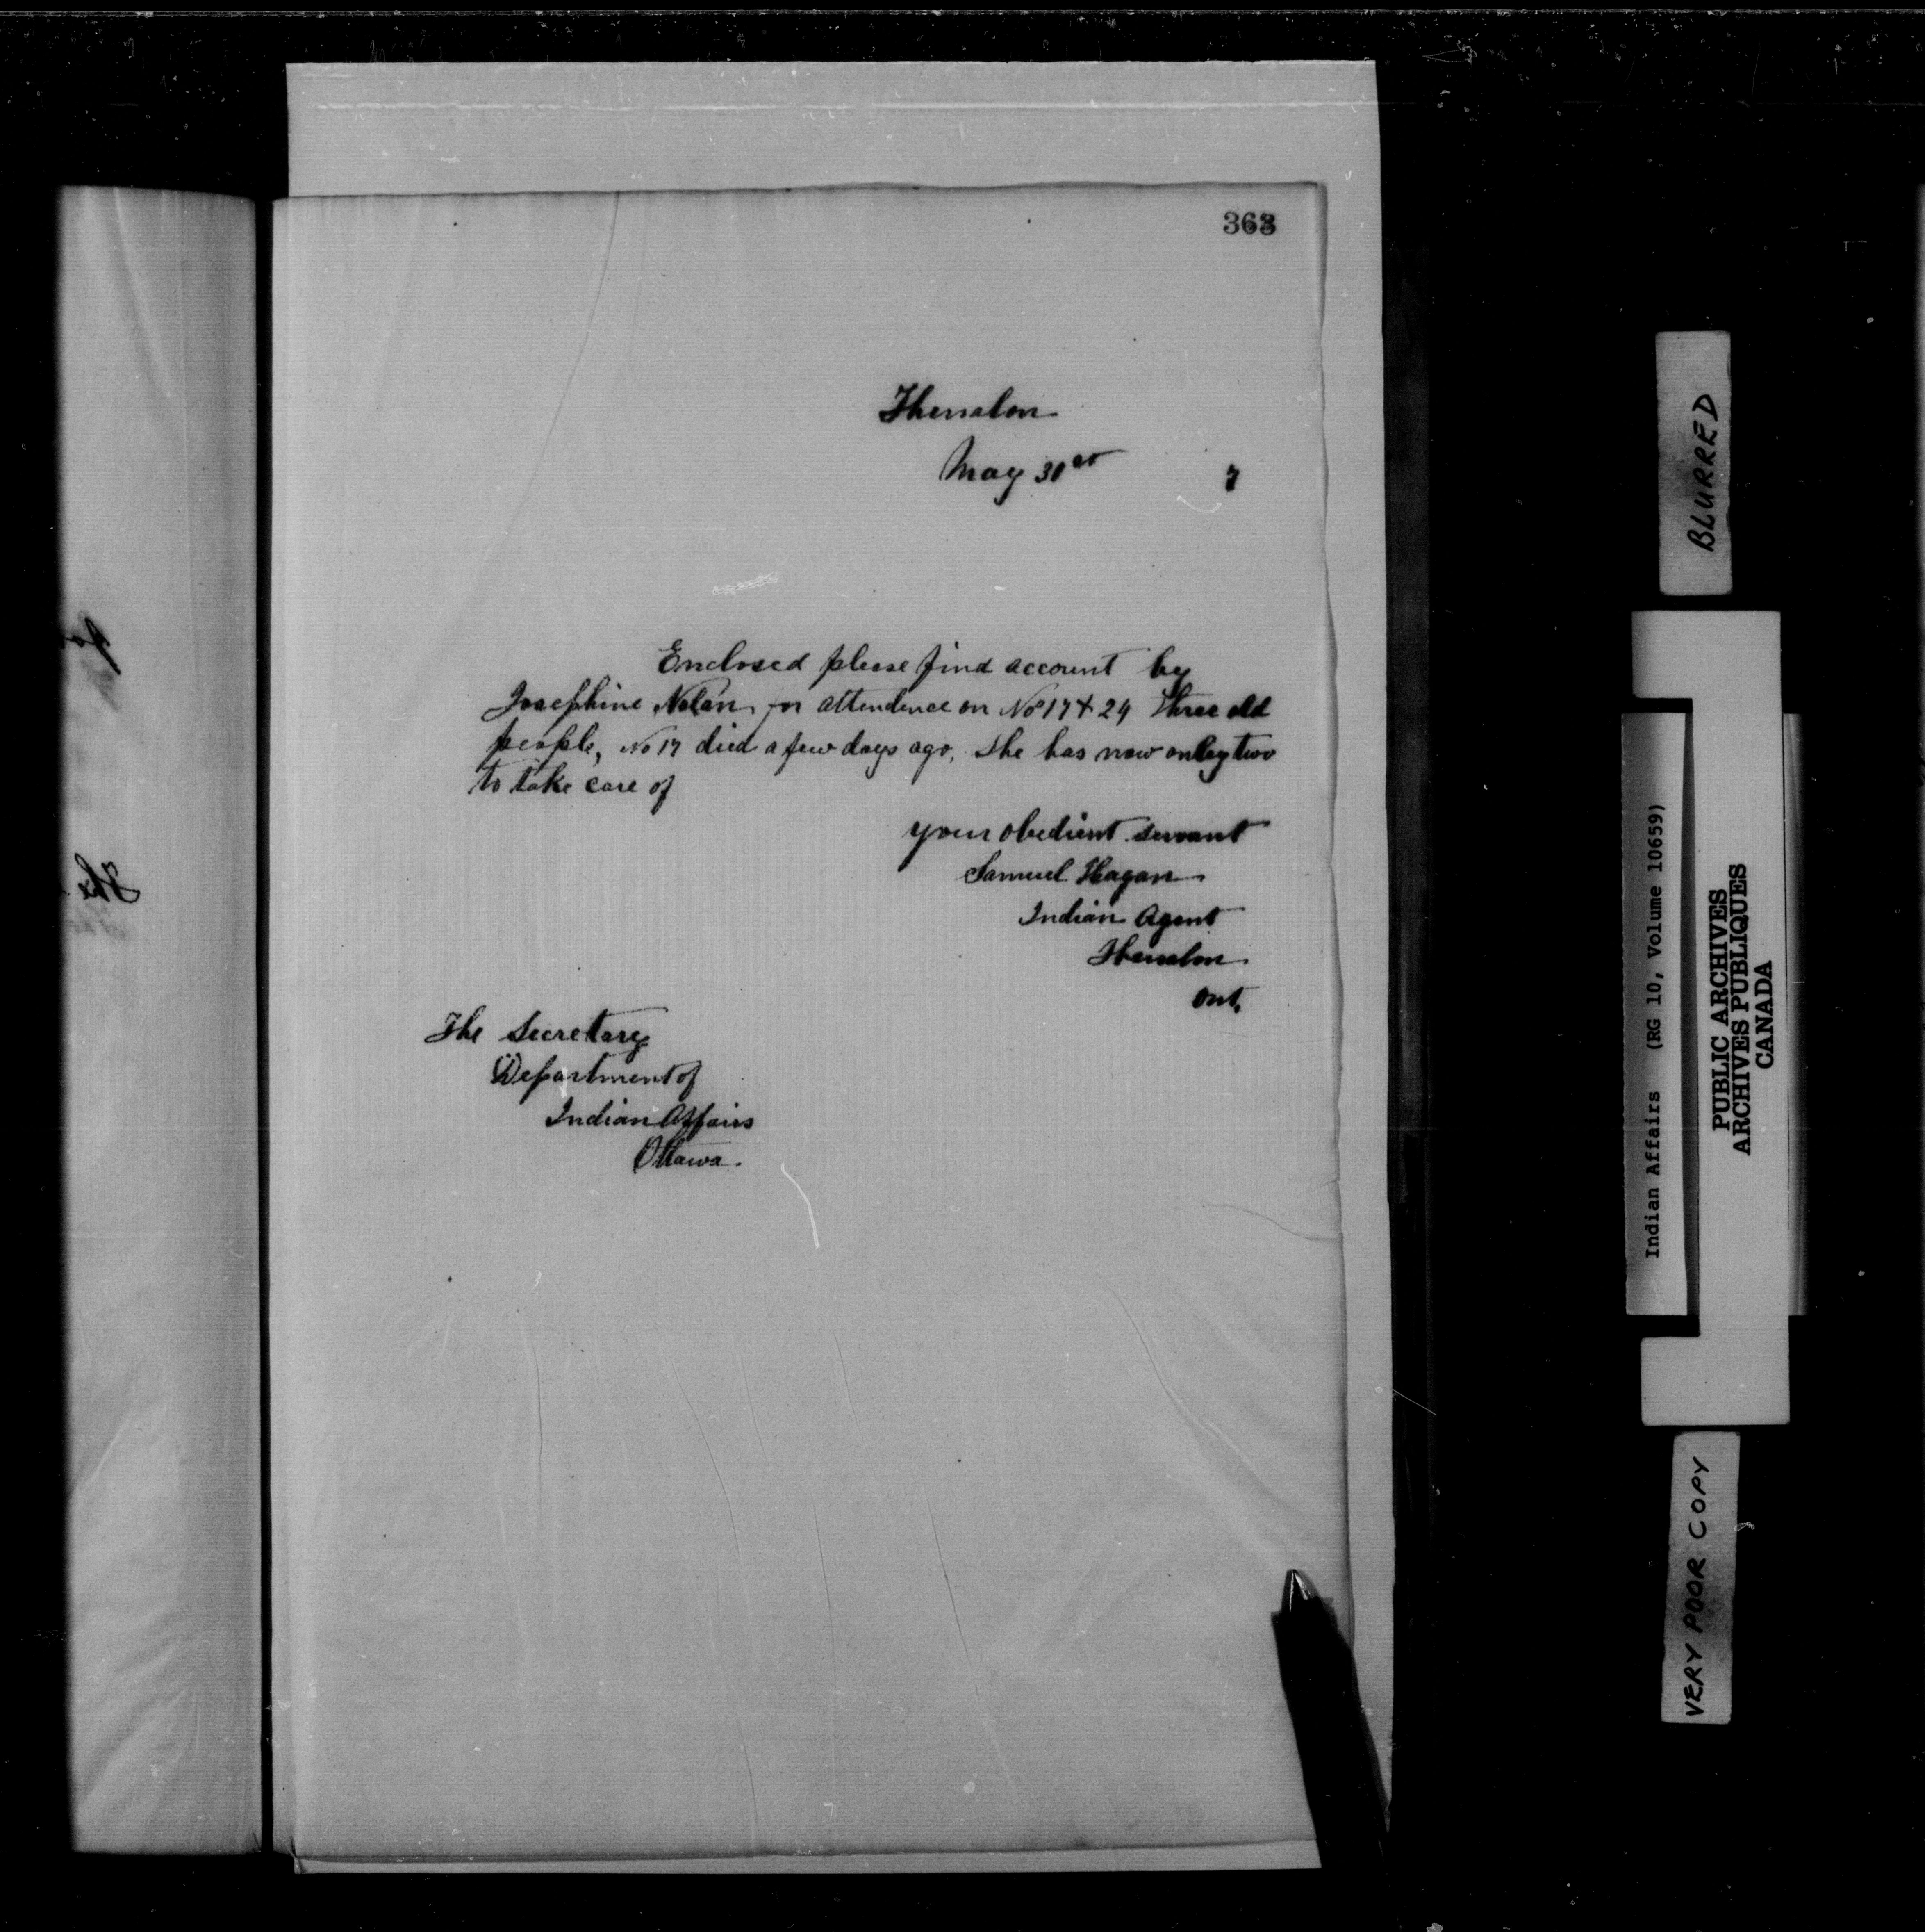 363
Thessalon
May 30th 7
Enclosed please find account by
Josephine Nolan for attendence on No 17 & 24 three old
people, No 17 died a few days ago, she has now onley two
to take care of
your obedient servant
Samuel Hagan
Indian Agent
Thessalon
Ont.
The Secretary
Department of
Indian Affairs
Ottawa.
The
BLURRED
Indian Affairs (RG 10, Volume 10659)
PUBLIC ARCHIVES
ARCHIVES PUBLIQUES
CANADA
VERY POOR COPY